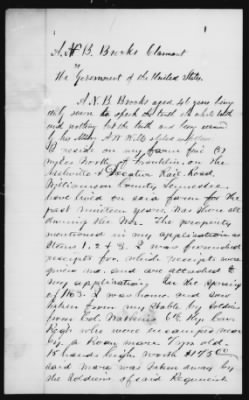 A. N. B. Brooks Claimant
vs
The Government of the United States.
A. N. B. Brooks aged 46 years being
duly sworn to speak the truth the whole truth
and nothing but the truth and being
by his Attorney A. W. Wills
I reside on my farm five (5)
myles North of Franklin on the
Nashville & Decatur Rail Road,
Williamson County Tennessee
have lived on said farm for the
past nineteen years. Was there all
during the War. The property
mentioned in my application as
Items 1. 2 & 3. I was furnished
receipts for, which receipts were
given me and are attached to
my application. In the spring
of 1863. I was home and saw
taken from my stable by Soldiers
from Col. Watkins 6th Ky. Cav.
Regt. who were encamped near
by a Roan mare 7 yrs old.
15 hands high worth $175.00
said mare was taken away by
the soldiers of said Regiment